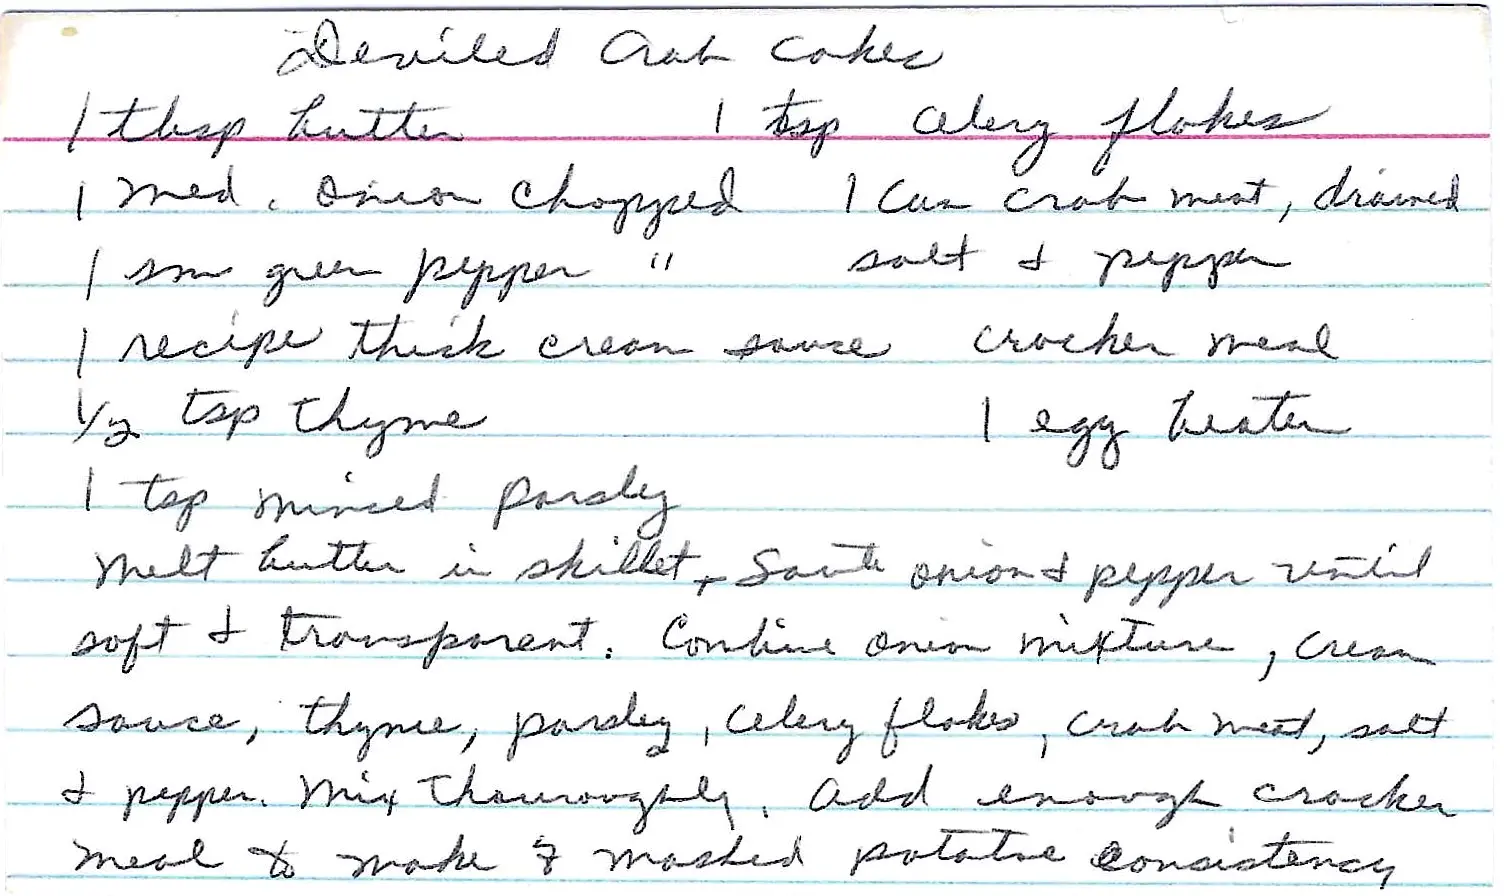 Deviled Crab Cakes
1 tbsp butter 1 tsp celery flakes
1 med. onion chopped 1 can crab meat, drained
1 sm green pepper " salt & pepper
1 recipe thick cream sauce cracker meal
1/2 tsp thyme 1 egg beaten
1 tsp minced parsley
Melt butter in skillet, + Saute onion & pepper until
soft & transparent. Combine onion mixture, cream
sauce, thyme, parsley, celery flakes, crab meat, salt
& pepper. Mix thouroughly. Add enough cracker
meal to make mashed potatoe consistency